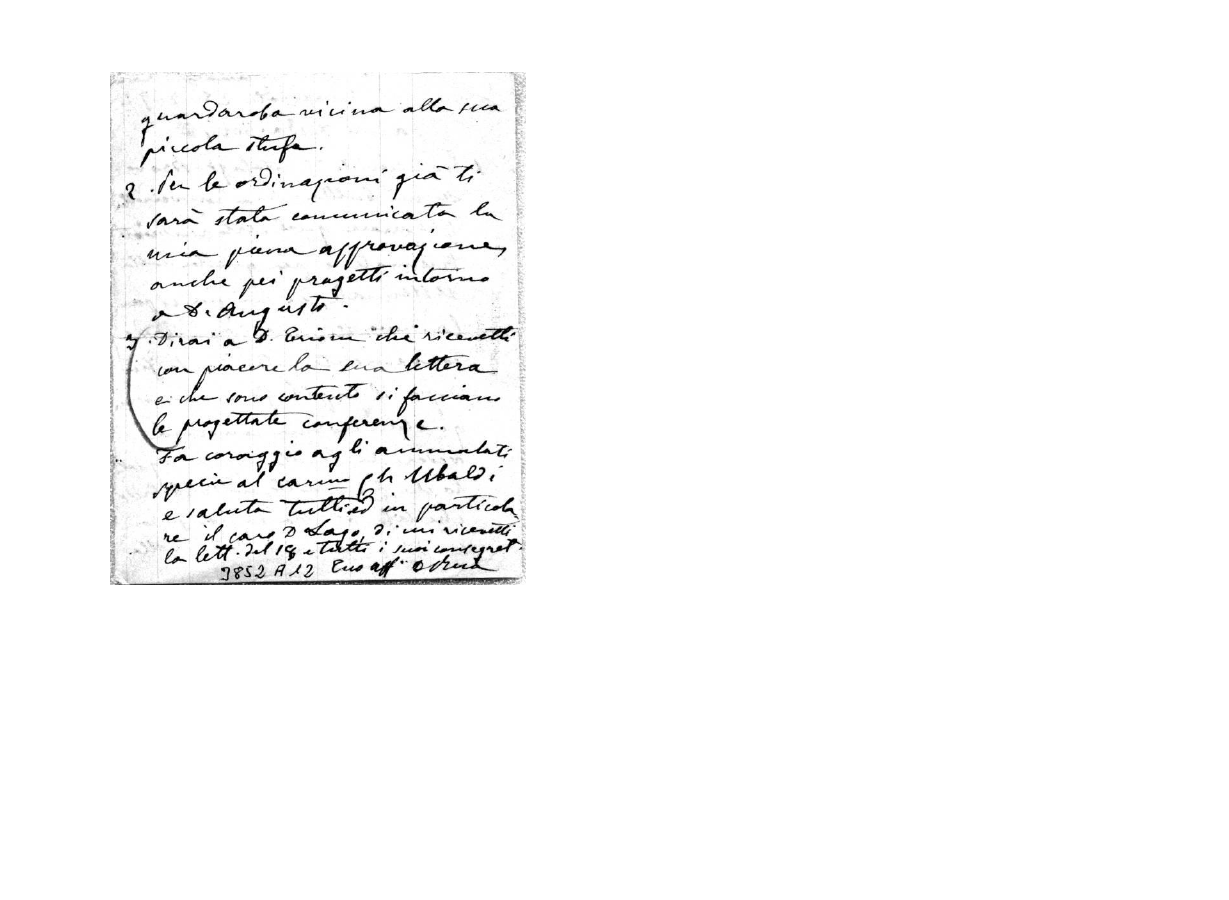 guardaroba vicina alla sua
piccola stufa.
2. Per le ordinazioni già ti
sarà stata comunicata la
mia piena approvazione,
anche pei progetti intorno
a D. Augusto.
3. Dirai a D. Trione che ricevetti
con piacere la sua lettera
e che sono contento si facciano
le progettate conferenze.
Fa coraggio agli ammalati
specie al carmo Ch Ubaldi
e saluta tutti ed in particola
re il caro D Lago, di mi ricevetti
la lett. del 18 e tutti i suoi
3852 A12 Tuo aff